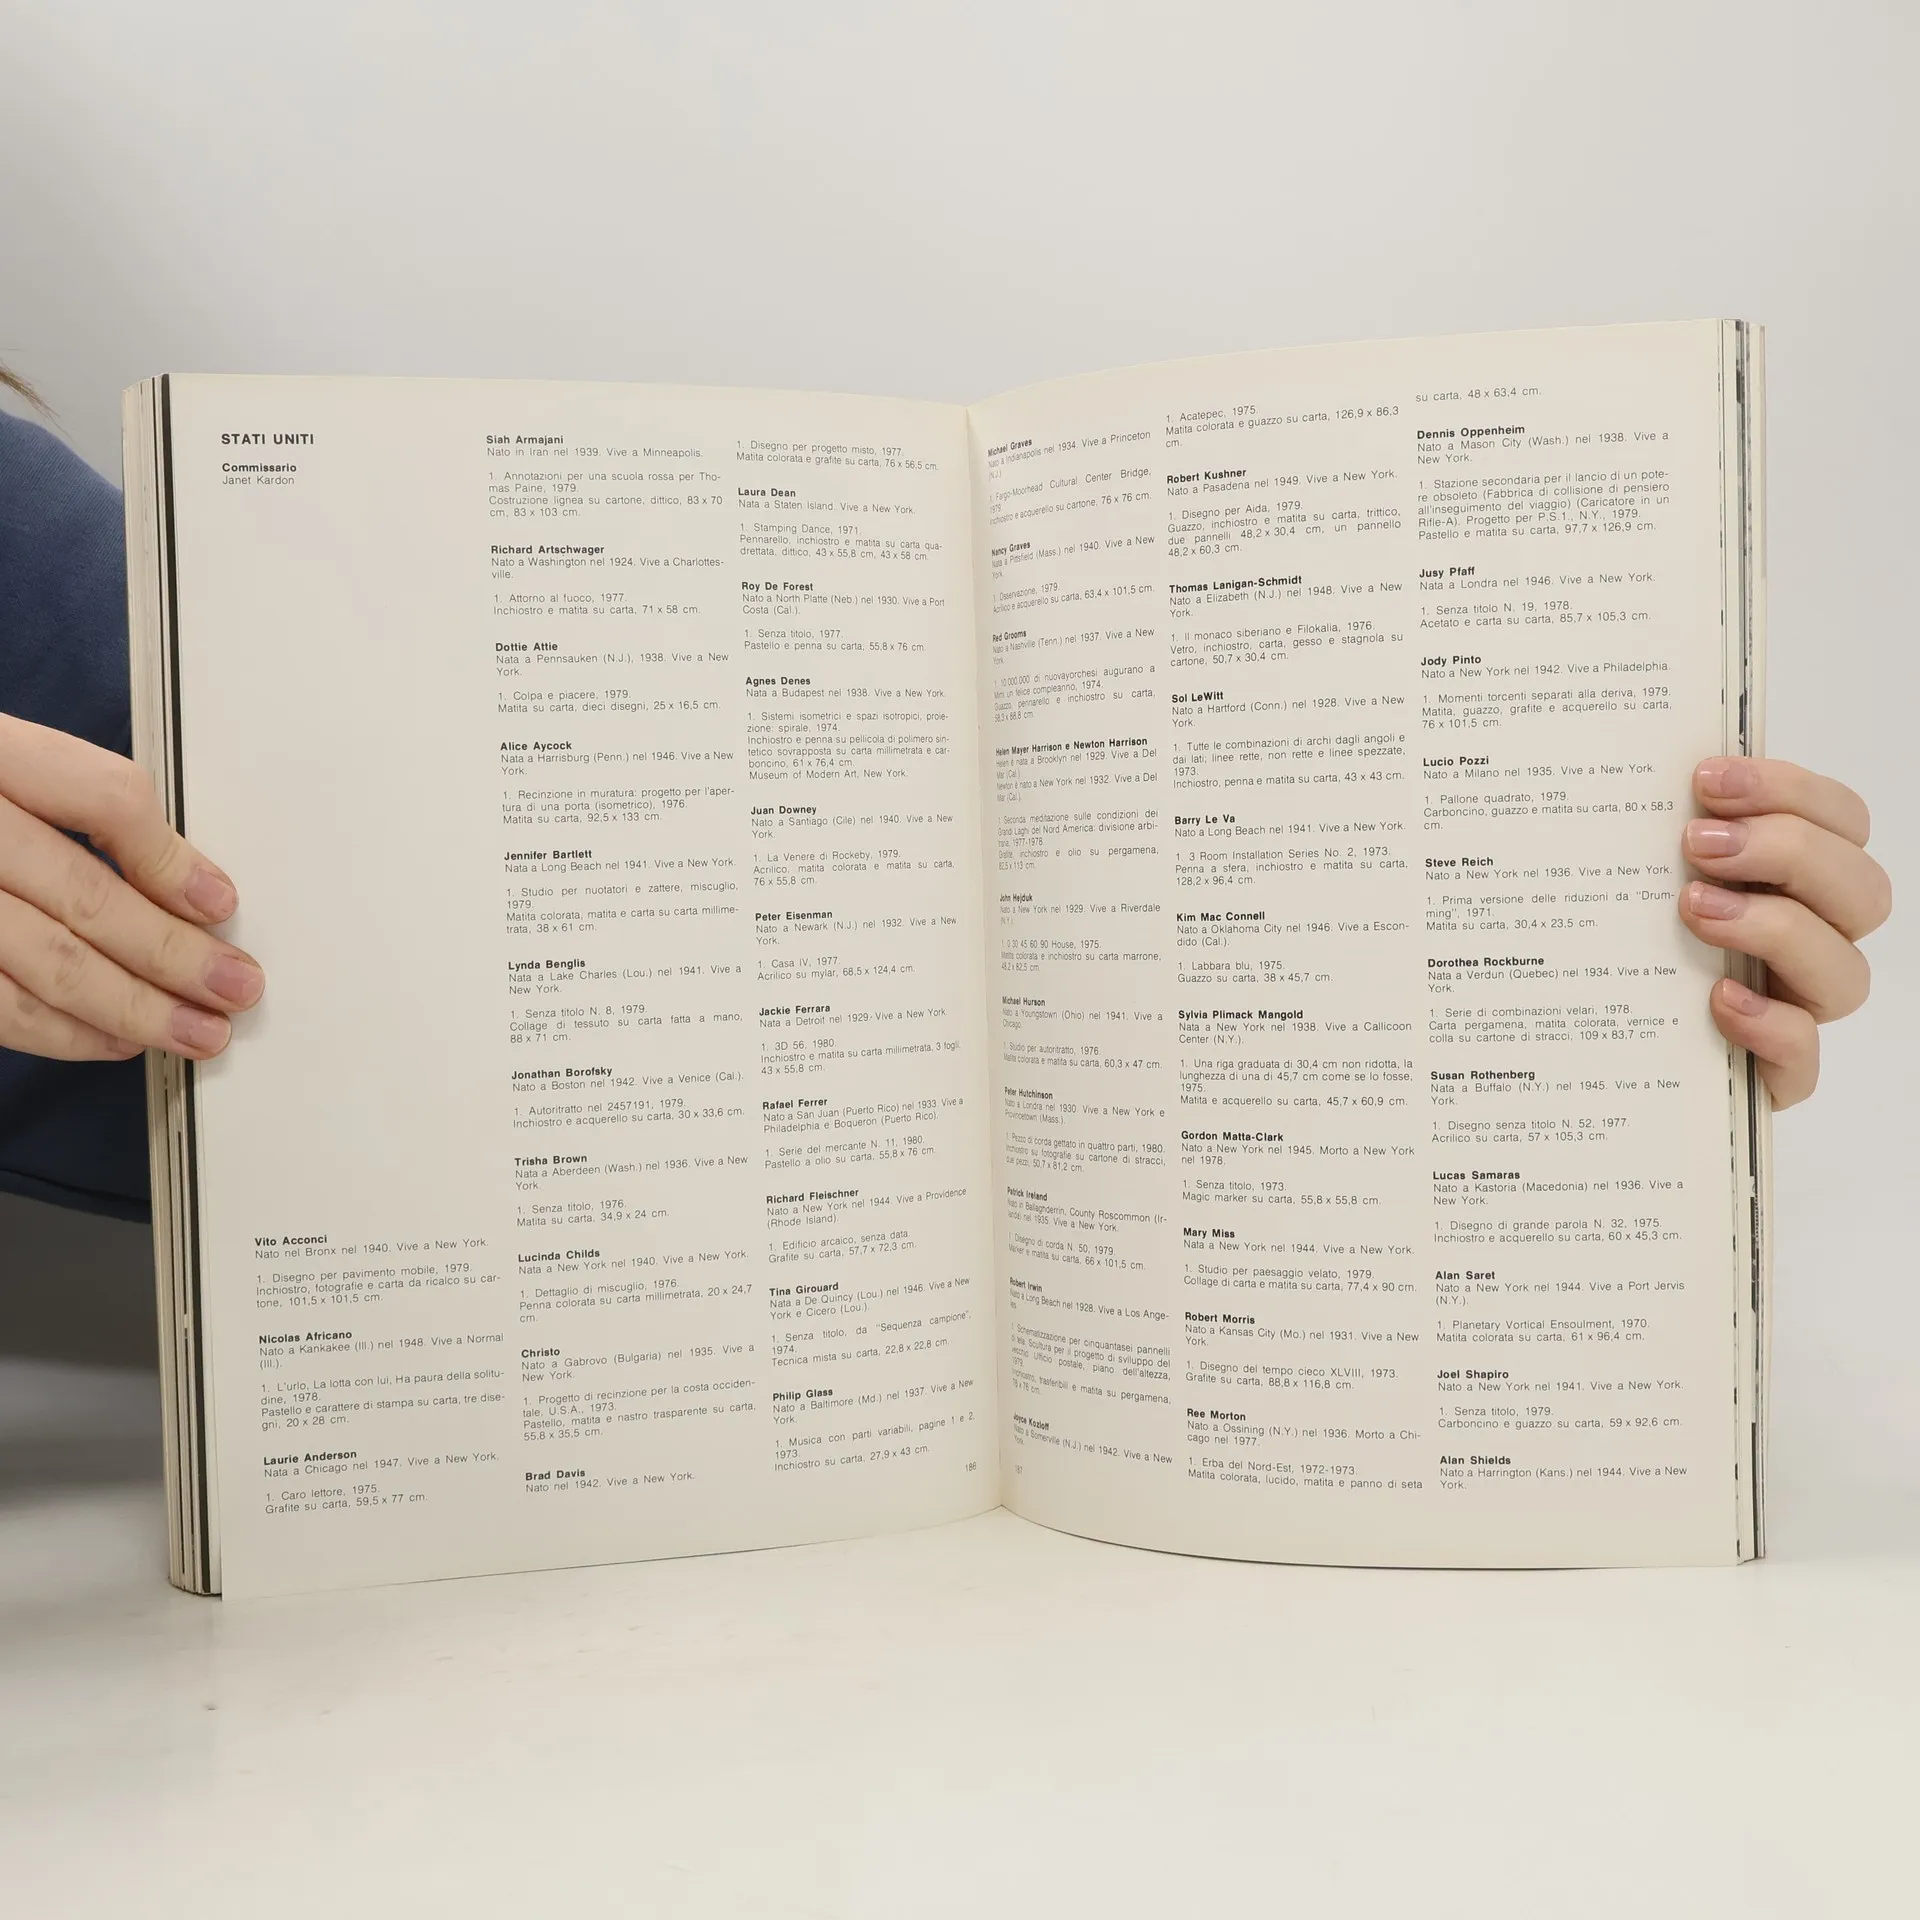 STATI UNITI
Commissario
Janet Kardon
Vito Acconci
Nato nel Bronx nel 1940. Vive a New York.
1. Disegno per pavimento mobile, 1979.
Inchiostro, fotografie e carta da ricalco su car-
tone, 101,5 x 101,5 cm.
Nicolas Africano
Nato a Kankakee (Ill.) nel 1948. Vive a Normal
(Ill.).
1. L'urlo, La lotta con lui, Ha paura della solitu-
dine, 1978.
Pastello e carattere di stampa su carta, tre dise-
gni, 20 x 28 cm.
Laurie Anderson
Nata a Chicago nel 1947. Vive a New York.
1. Caro lettore, 1975.
Grafite su carta, 59,5 x 77 cm.
Siah Armajani
Nato in Iran nel 1939. Vive a Minneapolis.
1. Annotazioni per una scuola rossa per Tho-
mas Paine, 1979.
Costruzione lignea su cartone, dittico, 83 x 70
cm, 83 x 103 cm.
Richard Artschwager
Nato a Washington nel 1924. Vive a Charlottes-
ville.
1. Attorno al fuoco, 1977.
Inchiostro e matita su carta, 71 x 58 cm.
Dottie Attie
Nata a Pennsauken (N.J.), 1938. Vive a New
York.
1. Colpa e piacere, 1979.
Matita su carta, dieci disegni, 25 x 16,5 cm.
Alice Aycock
Nata a Harrisburg (Penn.) nel 1946. Vive a New
York.
1. Recinzione in muratura: progetto per l'aper-
tura di una porta (isometrico), 1976.
Matita su carta, 92,5 x 133 cm.
Jennifer Bartlett
Nata a Long Beach nel 1941. Vive a New York.
1. Studio per nuotatori e zattere, miscuglio,
1979.
Matita colorata, matita e carta su carta millime-
trata, 38 x 61 cm.
Lynda Benglis
Nata a Lake Charles (Lou.) nel 1941. Vive a
New York.
1. Senza titolo N. 8, 1979.
Collage di tessuto su carta fatta a mano,
88 x 71 cm.
Jonathan Borofsky
Nato a Boston nel 1942. Vive a Venice (Cal.).
1. Autoritratto nel 2457191, 1979.
Inchiostro e acquerello su carta, 30 x 33,6 cm.
Trisha Brown
Nata a Aberdeen (Wash.) nel 1936. Vive a New
York.
1. Senza titolo, 1976.
Matita su carta, 34,9 x 24 cm.
Lucinda Childs
Nata a New York nel 1940. Vive a New York.
1. Dettaglio di miscuglio, 1976.
Penna colorata su carta millimetrata, 20 x 24,7
cm.
Christo
Nato a Gabrovo (Bulgaria) nel 1935. Vive a
New York.
1. Progetto di recinzione per la costa occiden-
tale, U.S.A., 1973.
Pastello, matita e nastro trasparente su carta,
55,8 x 35,5 cm.
Brad Davis
Nato nel 1942. Vive a New York.
1. Disegno per progetto misto, 1977.
Matita colorata e grafite su carta, 76 x 56,5 cm.
Laura Dean
Nata a Staten Island. Vive a New York.
1. Stamping Dance, 1971.
Pennarello, inchiostro e matita su carta qua-
drettata, dittico, 43 x 55,8 cm, 43 x 58 cm.
Roy De Forest
Nato a North Platte (Neb.) nel 1930. Vive a Port
Costa (Cal.).
1. Senza titolo, 1977.
Pastello e penna su carta, 55,8 x 76 cm.
Agnes Denes
Nata a Budapest nel 1938. Vive a New York.
1. Sistemi isometrici e spazi isotropici, proie-
zione: spirale, 1974.
Inchiostro e penna su pellicola di polimero sin-
tetico sovrapposta su carta millimetrata e car-
boncino, 61 x 76,4 cm.
Museum of Modern Art, New York.
Juan Downey
Nato a Santiago (Cile) nel 1940. Vive a New
York.
1. La Venere di Rockeby, 1979.
Acrilico, matita colorata e matita su carta,
76 x 55,8 cm.
Peter Eisenman
Nato a Newark (N.J.) nel 1932. Vive a New
York.
1. Casa IV, 1977.
Acrilico su mylar, 68,5 x 124,4 cm.
Jackie Ferrara
Nata a Detroit nel 1929. Vive a New York.
1. 3D 56, 1980.
Inchiostro e matita su carta millimetrata, 3 fogli,
43 x 55,8 cm.
Rafael Ferrer
Nato a San Juan (Puerto Rico) nel 1933. Vive a
Philadelphia e Boqueron (Puerto Rico).
1. Serie del mercante N. 11, 1980.
Pastello a olio su carta, 55,8 x 76 cm.
Richard Fleischner
Nato a New York nel 1944. Vive a Providence
(Rhode Island).
1. Edificio arcaico, senza data.
Grafite su carta, 57,7 x 72,3 cm.
Tina Girouard
Nata a De Quincy (Lou.) nel 1946. Vive a New
York e Cicero (Lou.).
1. Senza titolo, da "Sequenza campione",
1974.
Tecnica mista su carta, 22,8 x 22,8 cm.
Philip Glass
Nato a Baltimore (Md.) nel 1937. Vive a New
York.
1. Musica con parti variabili, pagine 1 e 2,
1973.
Inchiostro su carta, 27,9 x 43 cm.
186
Michael Graves
Nato a Indianapolis nel 1934. Vive a Princeton
(N.J.)
1. Fargo-Moorhead Cultural Center Bridge,
1979.
Inchiostro e acquerello su cartone, 76 x 76 cm.
Nancy Graves
Nata a Pittsfield (Mass.) nel 1940. Vive a New
York.
1. Osservazione, 1979.
Acrilico e acquerello su carta, 63,4 x 101,5 cm.
Red Grooms
Nato a Nashville (Tenn.) nel 1937. Vive a New
York.
1. 10.000.000 di nuovayorchesi augurano a
Mimi un felice compleanno, 1974.
Guazzo, pennarello e inchiostro su carta,
x 88,8 cm.
Helen Mayer Harrison e Newton Harrison
Helen è nata a Brooklyn nel 1929. Vive a Del
Mar (Cal.).
Newton è nato a New York nel 1932. Vive a Del
Mar (Cal.).
1. Seconda meditazione sulle condizioni dei
Grandi Laghi del Nord America: divisione arbi-
traria, 1977-1978.
Grafite, inchiostro e olio su pergamena,
x 113 cm.
John Hejduk
Nato a New York nel 1929. Vive a Riverdale
(N.Y.).
1. 0 30 45 60 90 House, 1975.
Matita colorata e inchiostro su carta marrone,
48,2 x 62,5 cm.
Michael Hurson
Nato a Youngstown (Ohio) nel 1941. Vive a
Chicago.
1. Studio per autoritratto, 1976.
Matita colorata e matita su carta, 60,3 x 47 cm.
Peter Hutchinson
Nato a Londra nel 1930. Vive a New York e
Provincetown (Mass.).
1. Pezzo di corda gettato in quattro parti, 1980.
Inchiostro su fotografie su cartone di stracci,
due pezzi, 50,7 x 81,2 cm.
Patrick Ireland
Nato in Ballaghderrin, County Roscommon (Ir-
landa) nel 1935. Vive a New York.
1. Disegno di corda N. 50, 1979.
Marker e matita su carta, 66 x 101,5 cm.
Robert Irwin
Nato a Long Beach nel 1928. Vive a Los Ange-
les
1. Schematizzazione per cinquantasei pannelli
o tela. Scultura per il progetto di sviluppo del
vecchio Ufficio postale, piano dell'altezza,
1979.
Inchiostro, trasferibili e matita su pergamena,
x 76 cm.
Joyce Kozloff
Nata a Somerville (N.J.) nel 1942. Vive a New
York.
187
1. Acatepec, 1975.
Matita colorata e guazzo su carta, 126,9 x 86,3
cm.
Robert Kushner
Nato a Pasadena nel 1949. Vive a New York.
1. Disegno per Aida, 1979.
Guazzo, inchiostro e matita su carta, trittico,
due pannelli 48,2 x 30,4 cm, un pannello
48,2 x 60,3 cm.
Thomas Lanigan-Schmidt
Nato a Elizabeth (N.J.) nel 1948. Vive a New
York.
1. Il monaco siberiano e Filokalia, 1976.
Vetro, inchiostro, carta, gesso e stagnola su
cartone, 50,7 x 30,4 cm.
Sol LeWitt
Nato a Hartford (Conn.) nel 1928. Vive a New
York.
1. Tutte le combinazioni di archi dagli angoli e
dai lati; linee rette, non rette e linee spezzate,
1973.
Inchiostro, penna e matita su carta, 43 x 43 cm.
Barry Le Va
Nato a Long Beach nel 1941. Vive a New York.
1. 3 Room Installation Series No. 2, 1973.
Penna a sfera, inchiostro e matita su carta,
128,2 x 96,4 cm.
Kim Mac Connell
Nato a Oklahoma City nel 1946. Vive a Escon-
dido (Cal.).
1. Labbara blu, 1975.
Guazzo su carta, 38 x 45,7 cm.
Sylvia Plimack Mangold
Nata a New York nel 1938. Vive a Callicoon
Center (N.Y.).
1. Una riga graduata di 30,4 cm non ridotta, la
lunghezza di una di 45,7 cm come se lo fosse,
1975.
Matita e acquerello su carta, 45,7 x 60,9 cm.
Gordon Matta-Clark
Nato a New York nel 1945. Morto a New York
nel 1978.
1. Senza titolo, 1973.
Magic marker su carta, 55,8 x 55,8 cm.
Mary Miss
Nata a New York nel 1944. Vive a New York.
1. Studio per paesaggio velato, 1979.
Collage di carta e matita su carta, 77,4 x 90 cm.
Robert Morris
Nato a Kansas City (Mo.) nel 1931. Vive a New
York.
1. Disegno del tempo cieco XLVIII, 1973.
Grafite su carta, 88,8 x 116,8 cm.
Ree Morton
Nato a Ossining (N.Y.) nel 1936. Morto a Chi-
cago nel 1977.
1. Erba del Nord-Est, 1972-1973.
Matita colorata, lucido, matita e panno di seta
su carta, 48 x 63,4 cm.
Dennis Oppenheim
Nato a Mason City (Wash.) nel 1938. Vive a
New York.
1. Stazione secondaria per il lancio di un pote-
re obsoleto (Fabbrica di collisione di pensiero
all'inseguimento del viaggio) (Caricatore in un
Rifle-A). Progetto per P.S.1., N.Y., 1979.
Pastello e matita su carta, 97,7 x 126,9 cm.
Jusy Pfaff
Nata a Londra nel 1946. Vive a New York.
1. Senza titolo N. 19, 1978.
Acetato e carta su carta, 85,7 x 105,3 cm.
Jody Pinto
Nato a New York nel 1942. Vive a Philadelphia.
1. Momenti torcenti separati alla deriva, 1979.
Matita, guazzo, grafite e acquerello su carta,
76 x 101,5 cm.
Lucio Pozzi
Nato a Milano nel 1935. Vive a New York.
1. Pallone quadrato, 1979.
Carboncino, guazzo e matita su carta, 80 x 58,3
cm.
Steve Reich
Nato a New York nel 1936. Vive a New York.
1. Prima versione delle riduzioni da "Drum-
ming", 1971.
Matita su carta, 30,4 x 23,5 cm.
Dorothea Rockburne
Nata a Verdun (Quebec) nel 1934. Vive a New
York.
1. Serie di combinazioni velari, 1978.
Carta pergamena, matita colorata, vernice e
colla su cartone di stracci, 109 x 83,7 cm.
Susan Rothenberg
Nata a Buffalo (N.Y.) nel 1945. Vive a New
York.
1. Disegno senza titolo N. 52, 1977.
Acrilico su carta, 57 x 105,3 cm.
Lucas Samaras
Nato a Kastoria (Macedonia) nel 1936. Vive a
New York.
1. Disegno di grande parola N. 32, 1975.
Inchiostro e acquerello su carta, 60 x 45,3 cm.
Alan Saret
Nato a New York nel 1944. Vive a Port Jervis
(N.Y.).
1. Planetary Vortical Ensoulment, 1970.
Matita colorata su carta, 61 x 96,4 cm.
Joel Shapiro
Nato a New York nel 1941. Vive a New York.
1. Senza titolo, 1979.
Carboncino e guazzo su carta, 59 x 92,6 cm.
Alan Shields
Nato a Harrington (Kans.) nel 1944. Vive a New
York.